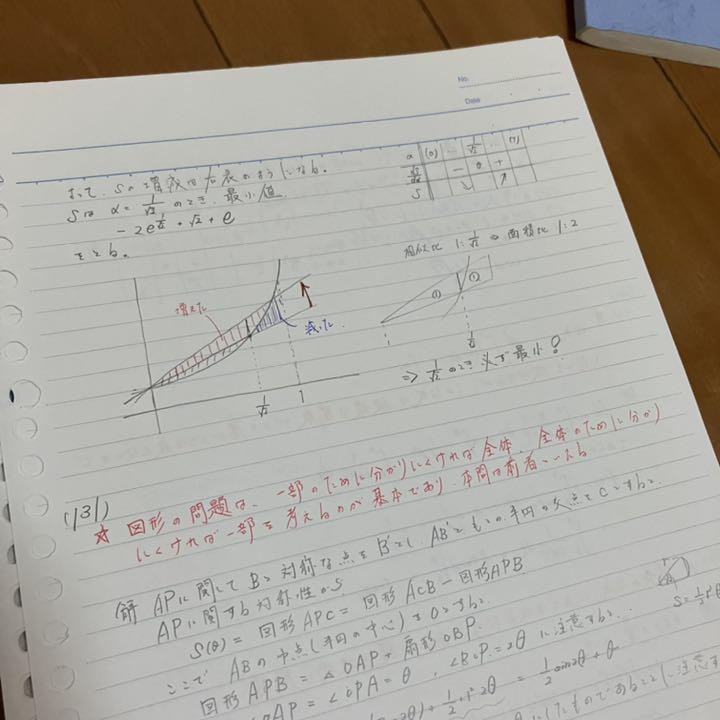 No.
Date
よって、Sの増減は右表のようになる。
Sは α = 1/√2 のとき、最小値
-2e^{1/√2} + √2 + e
をとる。
α (0) … 1/√2 … (1)
dS/dα − 0 +
S ↘ ↗
相似比 1:1/√2 ⇒ 面積比 1:2
増えた
減った
1/√2 1
① ②
1/√2
⇒ 1/√2 のとき 必ず最小!
(131)
☆ 図形の問題は、一部のために分かりにくければ全体、全体のために分かり
にくければ一部を考えるのが基本であり、本問は前者といえる
解 APに関してBと対称な点をB'とし、AB'ともとの半円の交点をCとする。
APに関する対称性から
S(θ) = 図形APC = 図形ACB − 図形APB
ここで ABの中点(半円の中心)をOとすると、
図形APB = △OAP + 扇形OBP.
∠OAP = ∠OPA = θ, ∠BOP = 2θ に注意すると、
2θ) + 1/2・1²・2θ = 1/2 sin2θ + θ